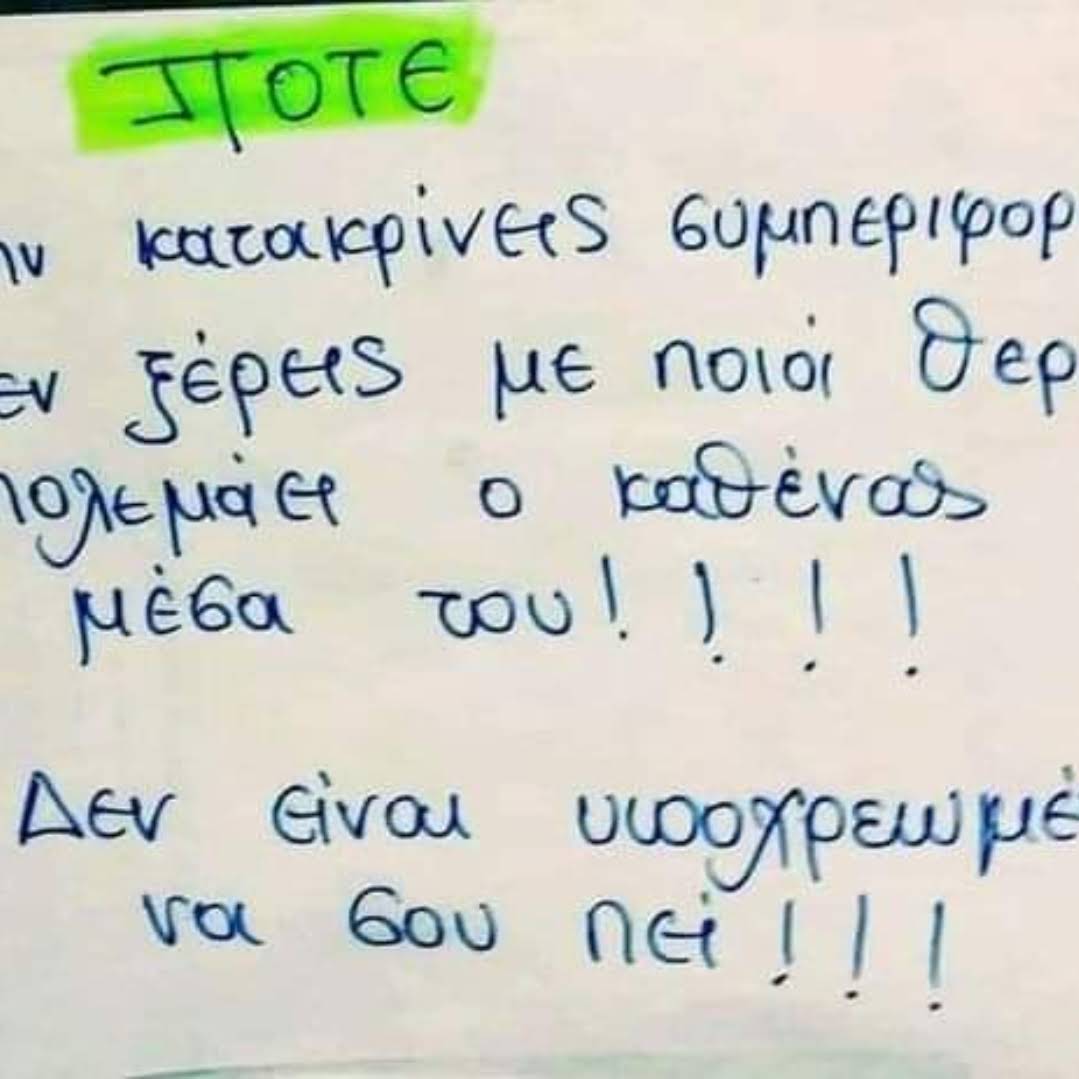 ΠΟΤΕ
ην κατακρίνεις συμπεριφορ
εν ξέρεις με ποιά θερ
πολεμάει ο καθένας
μέσα του!!!!
Δεν είναι υποχρεωμέ
να σου πεί!!!